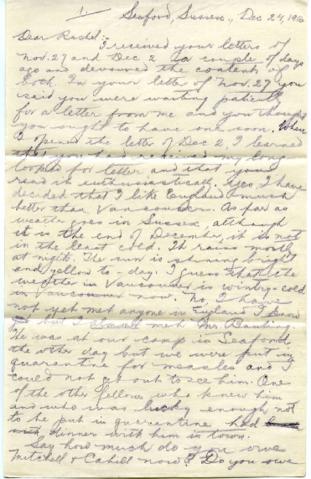 1.
Seaford, Sussex, Dec 24, 1916
Dear Rachel:-
I received your letters of
Nov. 27 and Dec 2 a couple of days
ago and devoured the contents of
both. In your letter of Nov. 27 you
said you were waiting patiently
for a letter from me and you thought
you ought to have one soon. When
I opened the letter of Dec 2, I learned
that you had received my long
looked for letter and that you
read it enthusiastically. Yes I have
decided that I like England much
better than Vancouver. As far as
weather goes in Sussex, although
it is the end of December, it is not
in the least cold. It rains mostly
at night. The sun is shining bright
and yellow to-day. I guess that the
weather in Vancouver is wintry-cold
in Vancouver now. No, I have
not yet met anyone in England I know
but I met Mr.
He was at our camp in Seaford
the other day but we were put in
quarantine for measles and I
could not get out to see him. One
of the other fellows who knew him
and who was lucky enough not
to be put in quarantine had
dinner with him in town.
Say how much do you owe
Mitchell & Cahill now? Do you owe